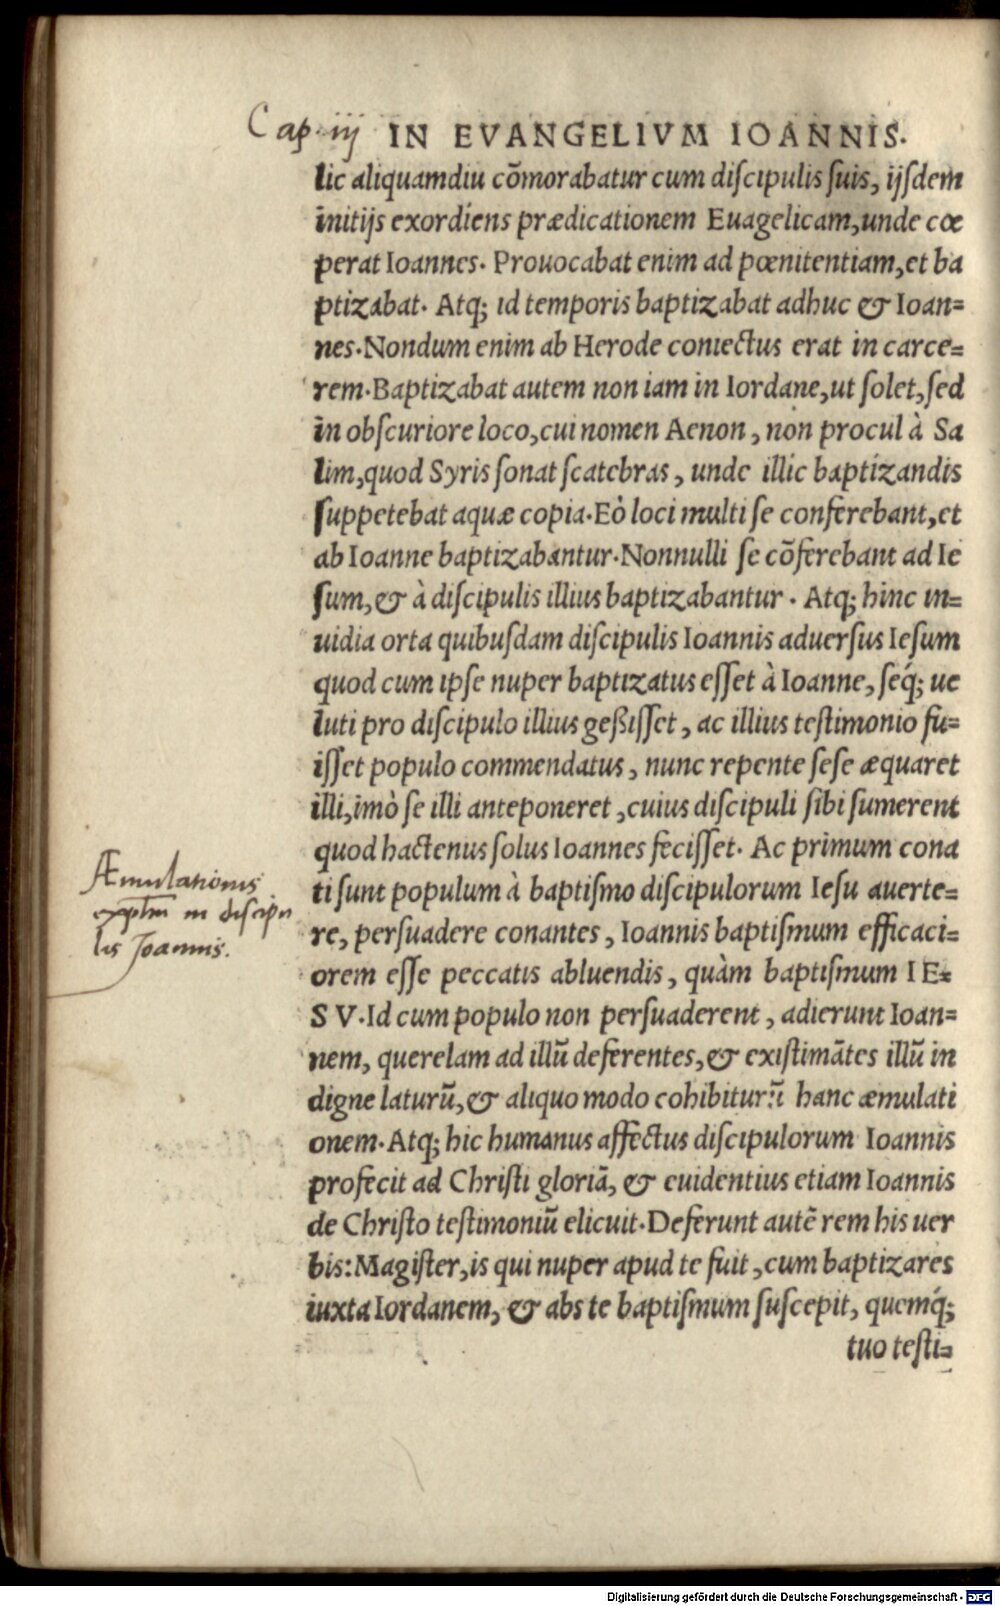 Cap. iij IN EVANGELIVM IOANNIS.
lic aliquamdiu cõmorabatur cum diſcipulis ſuis, ijſdem
initijs exordiens prædicationem Euagelicam, unde cœ
perat Ioannes. Prouocabat enim ad pœnitentiam, et ba
ptizabat. Atq; id temporis baptizabat adhuc & Ioan=
nes. Nondum enim ab Herode coniectus erat in carce=
rem. Baptizabat autem non iam in Iordane, ut ſolet, ſed
in obſcuriore loco, cui nomen Aenon, non procul à Sa
lim, quod Syris ſonat ſcatebras, unde illic baptizandis
ſuppetebat aquæ copia. Eò loci multi ſe conferebant, et
ab Ioanne baptizabantur. Nonnulli ſe cõferebant ad Ie
ſum, & à diſcipulis illius baptizabantur. Atq; hinc in=
uidia orta quibuſdam diſcipulis Ioannis aduerſus Ieſum
quod cum ipſe nuper baptizatus eſſet à Ioanne, ſeq́; ue
luti pro diſcipulo illius geßiſſet, ac illius teſtimonio fu=
iſſet populo commendatus, nunc repente ſeſe æquaret
illi, imò ſe illi anteponeret, cuius diſcipuli ſibi ſumerent
quod hactenus ſolus Ioannes feciſſet. Ac primum cona
ti ſunt populum à baptiſmo diſcipulorum Ieſu auerte=
re, perſuadere conantes, Ioannis baptiſmum efficaci=
orem eſſe peccatis abluendis, quàm baptiſmum IE=
SV. Id cum populo non perſuaderent, adierunt Ioan=
nem, querelam ad illũ deferentes, & exiſtimãtes illũ in
digne laturũ, & aliquo modo cohibiturũ hanc æmulati
onem. Atq; hic humanus affectus diſcipulorum Ioannis
profecit ad Chriſti gloriã, & euidentius etiam Ioannis
de Chriſto teſtimoniũ elicuit. Deferunt autẽ rem his uer
bis: Magiſter, is qui nuper apud te fuit, cum baptizares
iuxta Iordanem, & abs te baptiſmum ſuſcepit, quemq́;
tuo teſti=
Æmulationis
exp̅lm in diſcipu
lis Joannis.
Digitalisierung gefördert durch die Deutsche Forschungsgemeinschaft - DFG